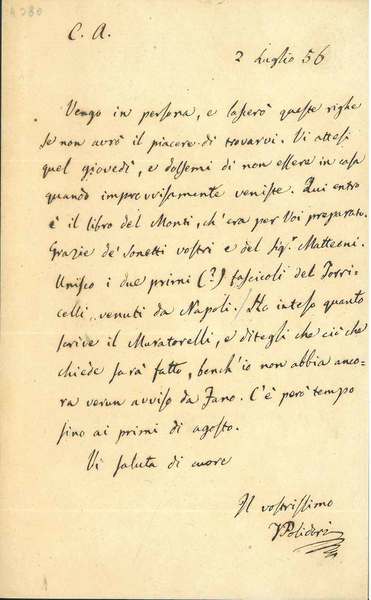 4780
C. A.
2 Luglio 56
Vengo in persona, e lascerò queste righe
se non avrò il piacere di trovarvi. Vi attesi
quel giovedì, e dolsemi di non essere in casa
quando improvvisamente veniste. Qui entro
è il libro del Monti, ch'era per Voi preparato.
Grazie de' sonetti vostri e del sig.r Matteoni.
Unisco i due primi (?) fascicoli del Torri-
celli, venuti da Napoli. / Ho inteso quanto
scrive il Muratorelli, e ditegli che ciò che
chiede sarà fatto, bench'io non abbia anco-
ra verun avviso da Fano. C'è però tempo
sino ai primi di agosto.
Vi saluta di cuore
Il vostrissimo
Polidori